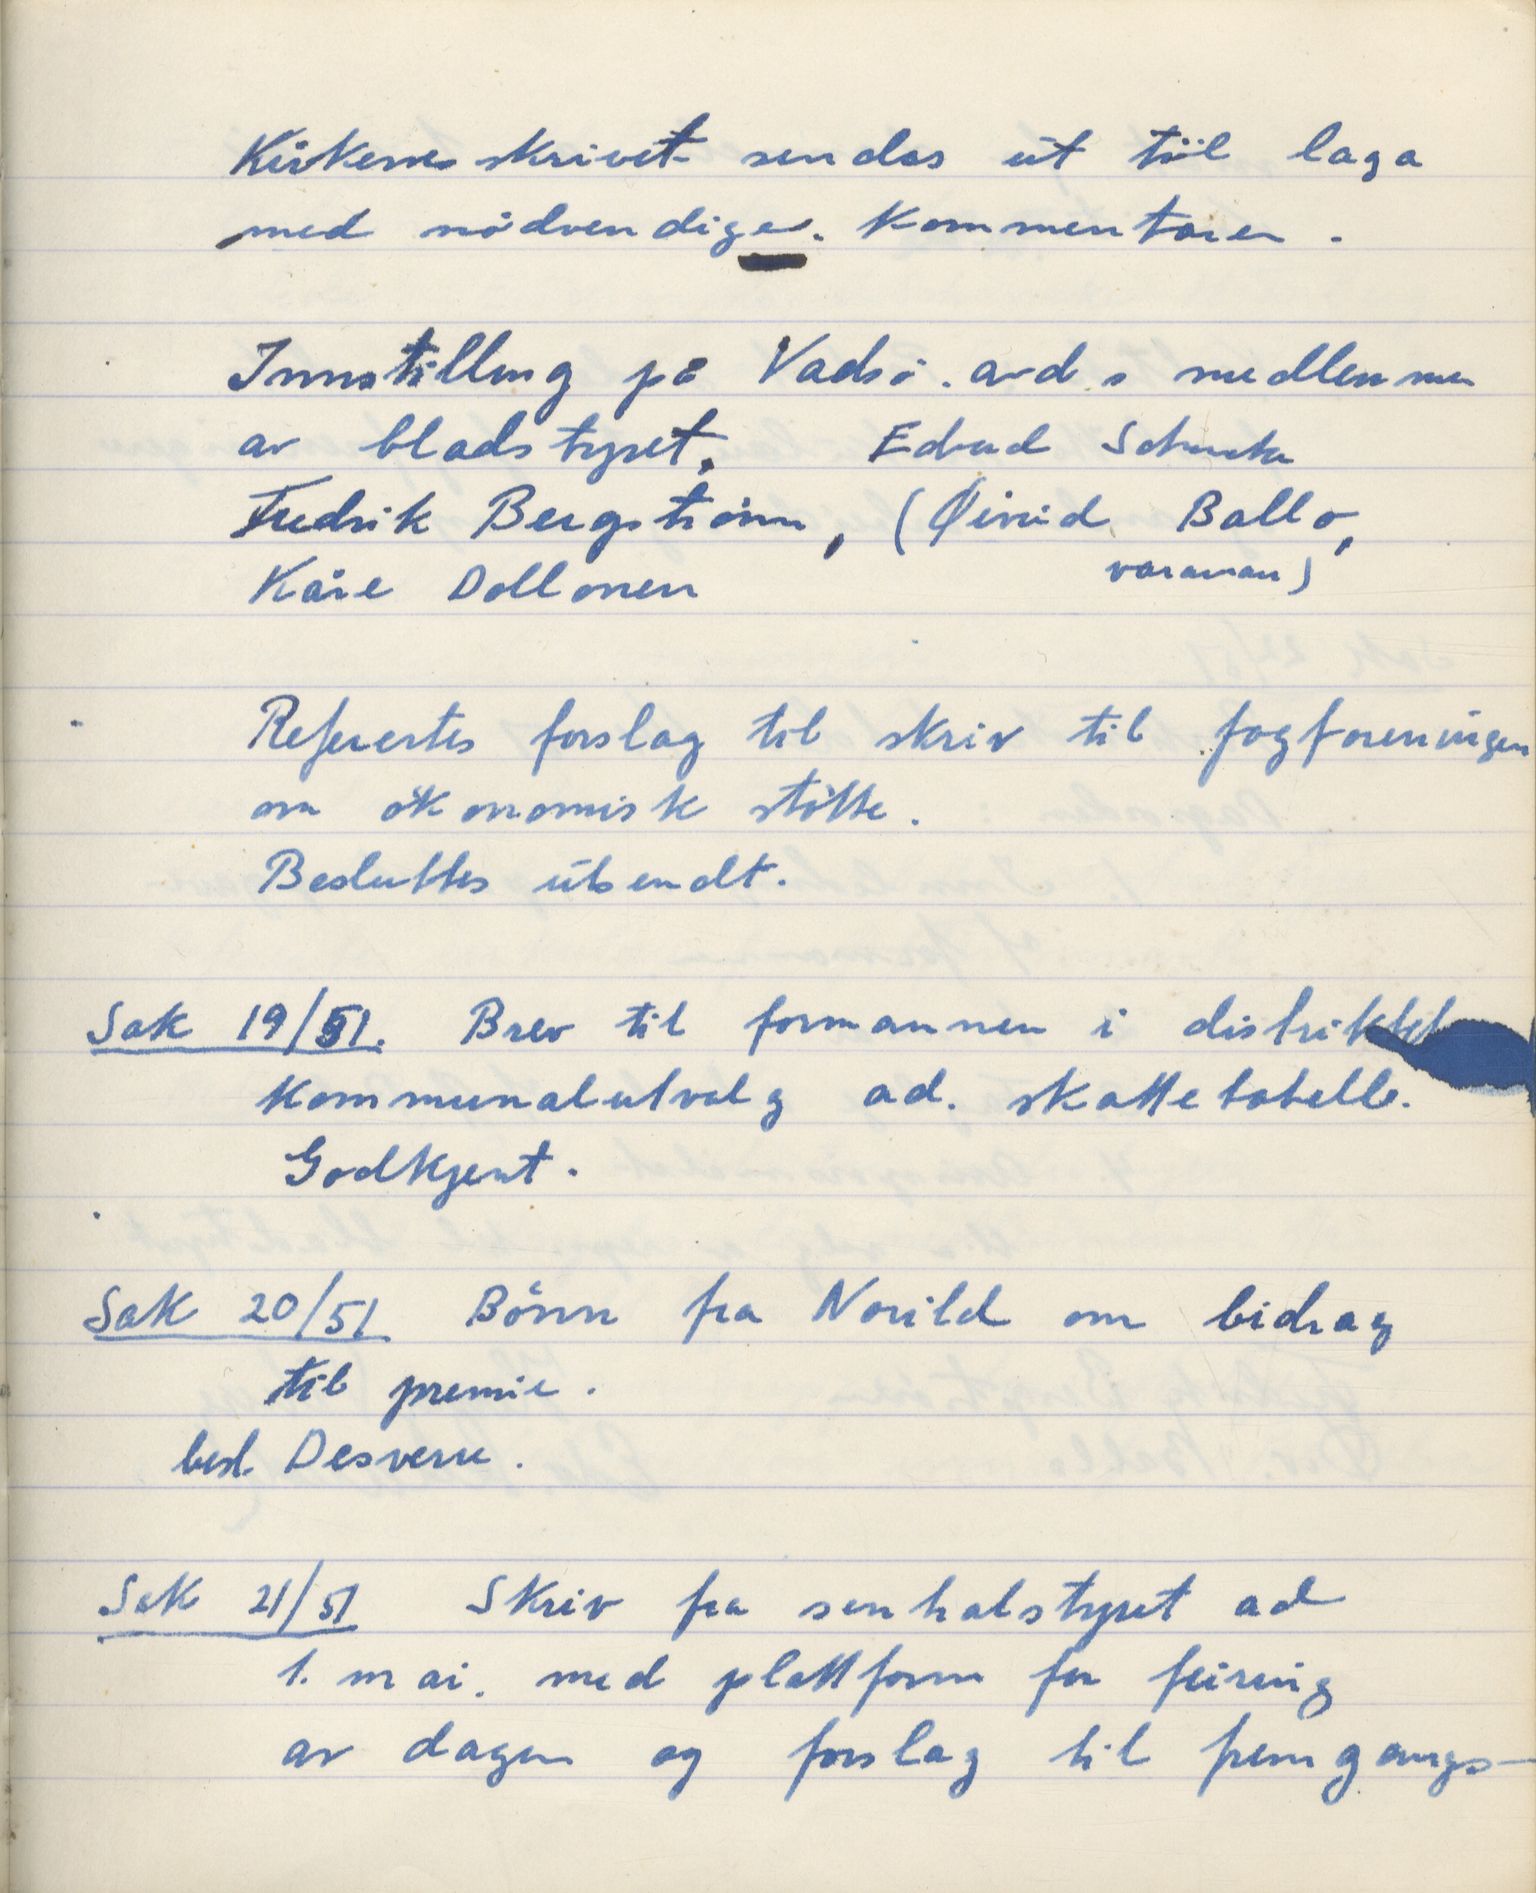 Kirkenesskrivet sendes ut til laga
med nödvendige kommentarer.
Innstilling på Vadsö. avd.s medlemmer
av bladstyret. Edvard
Fredrik Bergström, (Øivind Ballo,
varaman)
Kåre Dollonen
Referertes forslag til skriv til fagforeningen
om ökonomisk stötte.
Besluttes utsendt.
Sak 19/51. Brev til formannen i distriktets
kommunalutvalg ad. skattetabelle.
Godkjent.
Sak 20/51 Bönn fra Norild om bidrag
til premie.
besl. Desverre.
Sak 21/51 Skriv fra sentralstyret ad
1. mai. med plattform for feiring
av dagen og forslag til fremgangs-